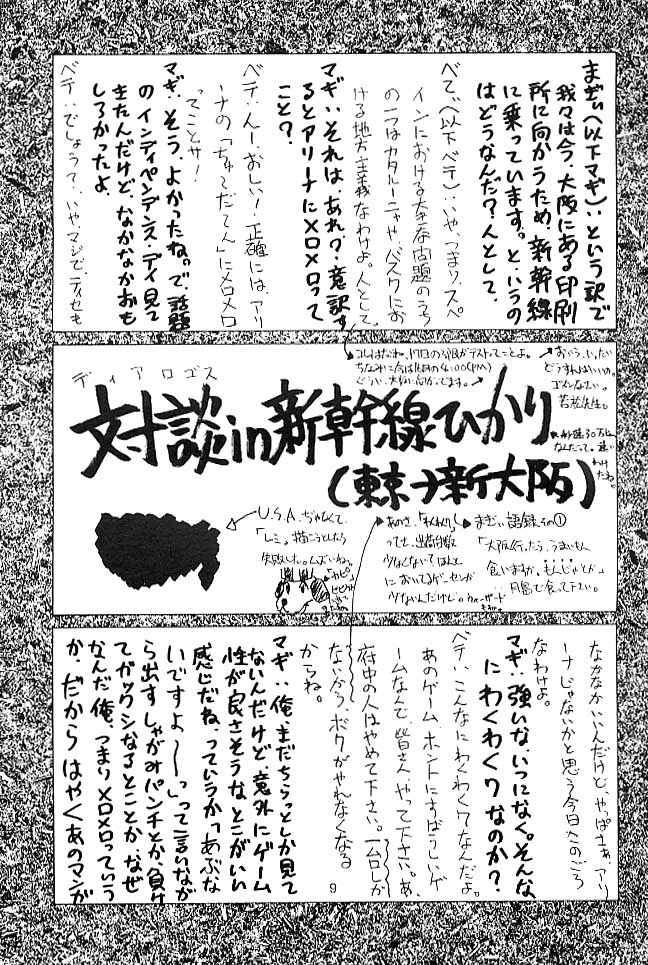 まぎぃ(以下マギ):という訳で
我々は今、大阪にある印刷
所に向かうため、新幹線
に乗っています。と、いうの
はどうなんだ?人として。
べてぃ(以下ベテ):いや、つまり、スペ
インにおける大きな問題のうち
の一つはカタルーニャや、バスクにお
ける地方主義なわけよ。人として。
マギ:それは、あれ?意訳す
るとアリーナにメロメロって
こと?
ベテ:んー、おしい!正確には、アリ
ーナの「ちゅてだてん」にメロメロ
ってことサ!
マギ:そう、よかったね。で、話題
のインディペンデンス・デイ見て
きたんだけど、なかなかおも
しろかったよ。
ベテ:でしょうて、いやマジで、ティセも
ディアロゴス
対談in新幹線ひかり
(東京→新大阪)
おぃらぃ、いったい
どうすればいいの。
ゴメンなさい。
若松先生。
U.S.A.ぢゃなくて、
「レミ」。描こうとしたら
失敗した。ムずいねっ
あのさ、「わくわく7」
ってさ、出荷台数
少なくない?ほんと
において3ゲーセンが
少ないんだけど。
まぎぃ語録その①
「大阪行ったら、うまいもん
食いますか。もんじゃとか」
月島で食って下さい。
なかなかいいんだけど、やっぱさぁ、アリ
ーナじゃないかと思う今日このごろ
なわけよ。
マギ:強いな、いつになく。そんな
にわくわく7なのか?
ベテ:こんなにわくわく7なんだよ。
あのゲーム ホントにすばらしいゲ
ームなんで、皆さん、やって下さい。あ、
府中の人はやめて下さい。一台しか
ないから、ボクがやれなくなる
からね。
マギ:俺、まだちらっとしか見て
ないんだけど、意外にゲーム
性が良さそうな、とこがいい
感じだね、っていうか「あぶな
いですよ〜〜」って言いなが
ら出すしゃがみパンチとか、負け
てガックシなるとことか、なぜ
なんだ俺、つまりメロメロっていう
か、だからはやくあのマンが
9